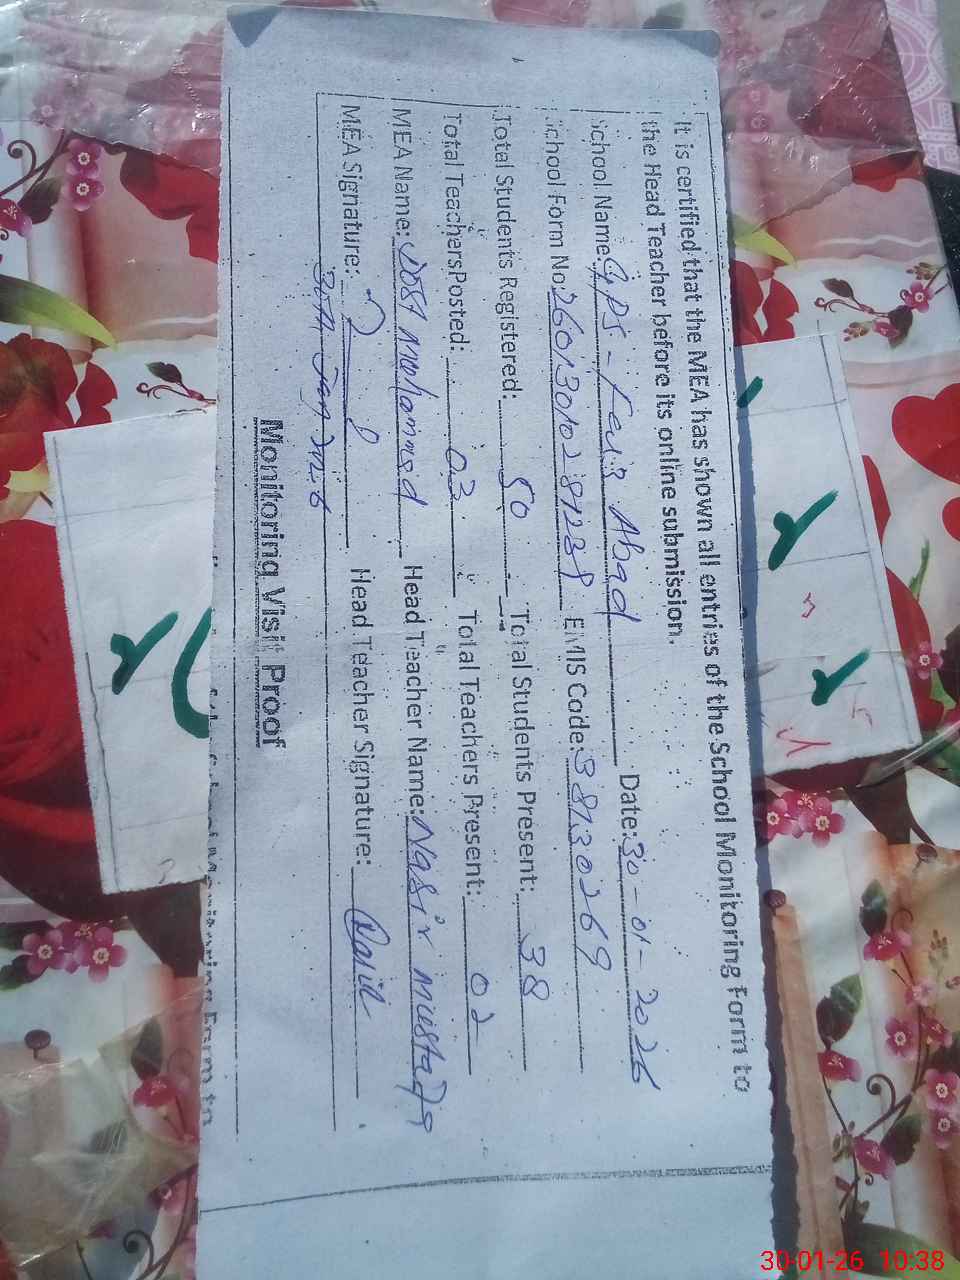 It is certified that the MEA has shown all entries of the School Monitoring Form to
the Head Teacher before its online submission.
School Name: GPS - Faiz Abad Date: 30-01-2026
School Form No: 2601301028123 EMIS Code: 38130269
Total Students Registered: 50 Total Students Present: 38
Total Teachers Posted: 03 Total Teachers Present: 02
MEA Name: Dost Mohammad Head Teacher Name: Nasir Mustafa
MEA Signature: Head Teacher Signature: Nasir
30th Jan 2026
Monitoring Visit Proof
30-01-26 10:38